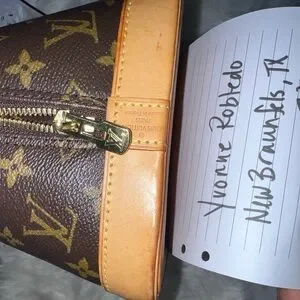 Yvonne Robledo
New Braunfels, TX
LV